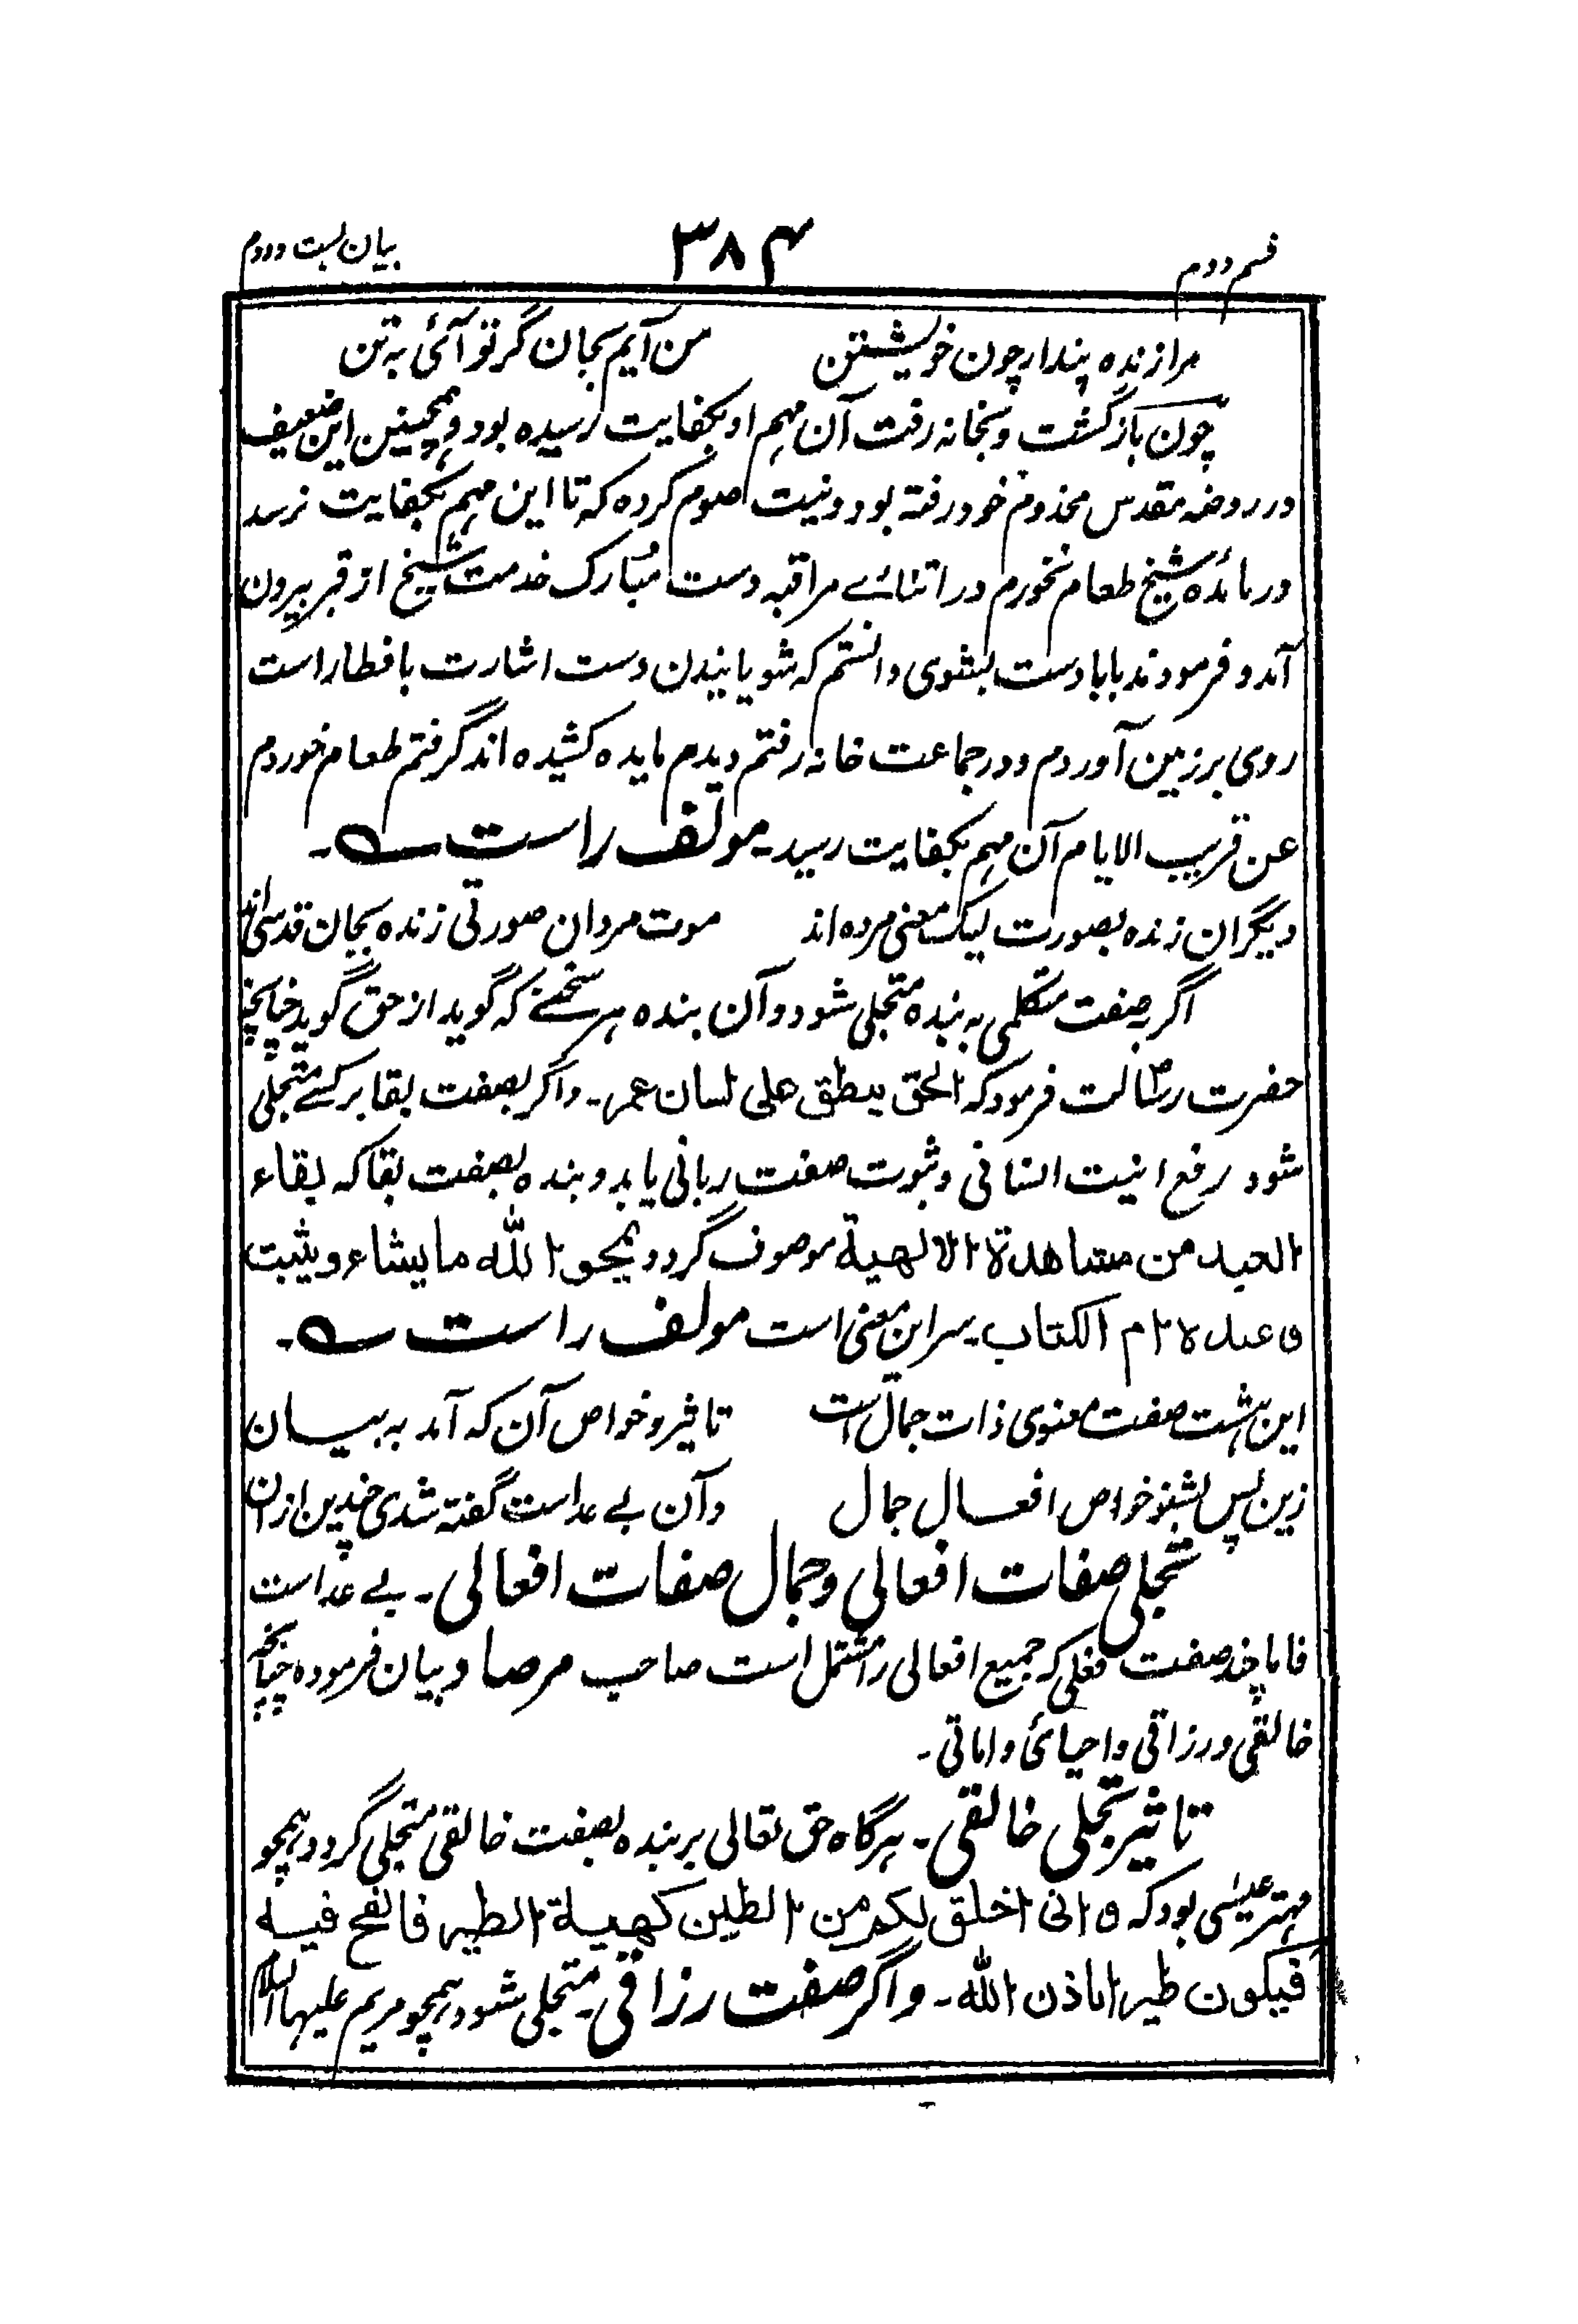 قسم دوم ۳۸۴ بیان بست ودوم
مرا زنده پندار چون خویشتن من آیم بجان گر تو آئی به تن
چون بازگشت و بخانه رفت آن مهم او بکفایت رسیده بود و همچنین این ضعیف
در روضه مقدس مخدوم خود رفته بود و نیت صوم کرده که تا این مهم بکفایت نرسد
در مائده شیخ طعام نخورم در اثنائے مراقبه دست مبارک خدمت شیخ از قبر بیرون
آمد و فرمودند بابا دست بشوی دانستم که شویانیدن دست اشارت بافطار است
روی بر زمین آوردم و در جماعت خانه رفتم دیدم مایده کشیده اند گرفتم طعام خوردم
عن قریب الایام آن مهم بکفایت رسید۔ مولف راست ؎۔
دیگران زنده بصورت لیک معنی مرده اند موت مردان صورتی زنده بجان قدسی اند
اگر بصفت متکلمی به بنده متجلی شود و آن بنده هر سخنے که گوید از حق گوید چنانچه
حضرت رسالتؐ فرمود که الحق ینطق علی لسان عمر۔ و اگر بصفت بقا بر کسے متجلی
شود رفع انیت انسانی و ثبوت صفت ربانی یابد و بنده بصفت بقا که بقاء
العبد من مشاهدة الالهیة موصوف گردد یمحو الله ما یشاء و یثبت
و عنده ام الکتاب۔ سر این معنی است مولف راست ؎۔
این هشت صفت معنوی ذات جمال است تاثیر و خواص آن که آمد به بیان
زین پس بشنو خواص افعال جمال وآن بے عد است گفته شدی چندین ازان
تجلی صفات افعالی و جمال صفات افعالی۔ بے عد است
فاما چند صفت فعلی که جمیع افعالی را مشتمل است صاحب مرصاد بیان فرموده چنانچه
خالقی و رزاقی و احیائی و اماتی۔
تاثیر تجلی خالقی۔ هرگاه حق تعالی بر بنده بصفت خالقی متجلی گردد همچو
مهتر عیسیٰ بود که و انی اخلق لکم من الطین کهیة الطیر فانفخ فیه
فیکون طیرا باذن الله۔ و اگر صفت رزاقی متجلی شود همچو مریم علیها السلام